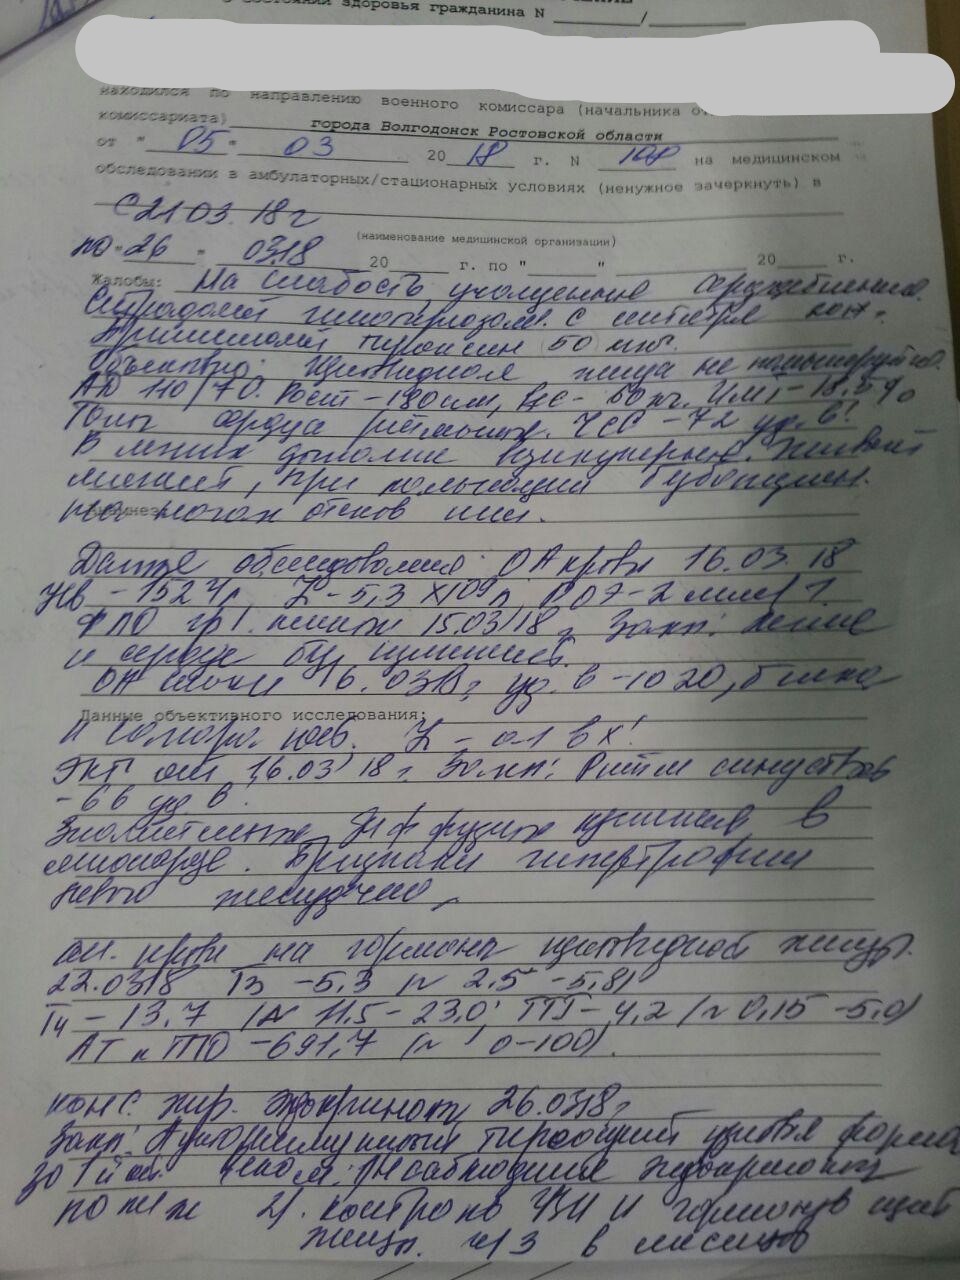 о состоянии здоровья гражданина N ____/____
находился по направлению военного комиссара (начальника
комиссариата) города Волгодонск Ростовской области
от " 05 " 03 20 18 г. N на медицинском
обследовании в амбулаторных/стационарных условиях (ненужное зачеркнуть) в
С 21 03. 18 г
(наименование медицинской организации)
по "26 " 03.18 20 г. по " " 20 г.
Жалобы: На слабость, учащенное сердцебиение.
Страдает гипотиреозом. С сентября
Принимает тироксин (50 мкг.
Объективно: Щитвидная ж-ца не пальпируется.
АД 110/70. Рост - 180 см, вес - 60 кг. ИМТ - 18.5%
Тоны сердца ритмичные. ЧСС - 72 уд. в'
В легких дыхание везикулярное. Живот
мягкий, при пальпации безболезнен.
Анамнез: На ногах отеков нет.
Данные обследования: ОА крови 16.03.18
Нв - 152 г/л, L - 5,3 х 109 л, СОЭ - 2 мм/ч.
ФЛО гр. клетки 15.03.18 г Закл: легкие
и сердце без изменений.
ОА мочи 16.03.18 г уд. в - 1020, белка
Данные объективного исследования:
и сахара нет. L - 0-1 в
ЭКГ от 16.03.18 г. Закл: Ритм синусовый
- 66 уд. в'
Диффузные изменен. в
миокарде. Признаки гипертрофии
левого желудочка
ан. крови на гормоны щитвидной ж-цы.
22.03.18 Т3 - 5,3 (N 2.5 - 5,8)
Т4 - 13.7 (N 11.5 - 23.0; ТТГ - 4,2 (N 0,15 - 5.0)
АТ к ТПО - 691.7 (N 0-100).
конс. эндокринолог 26.03.18 г
Закл: Аутоиммунный тиреоидит форма
Реком: 1) наблюдение эндокринолог
по м/ж 2). контроль УЗИ и гормонов щит
ж-цы. 3 в месяцев